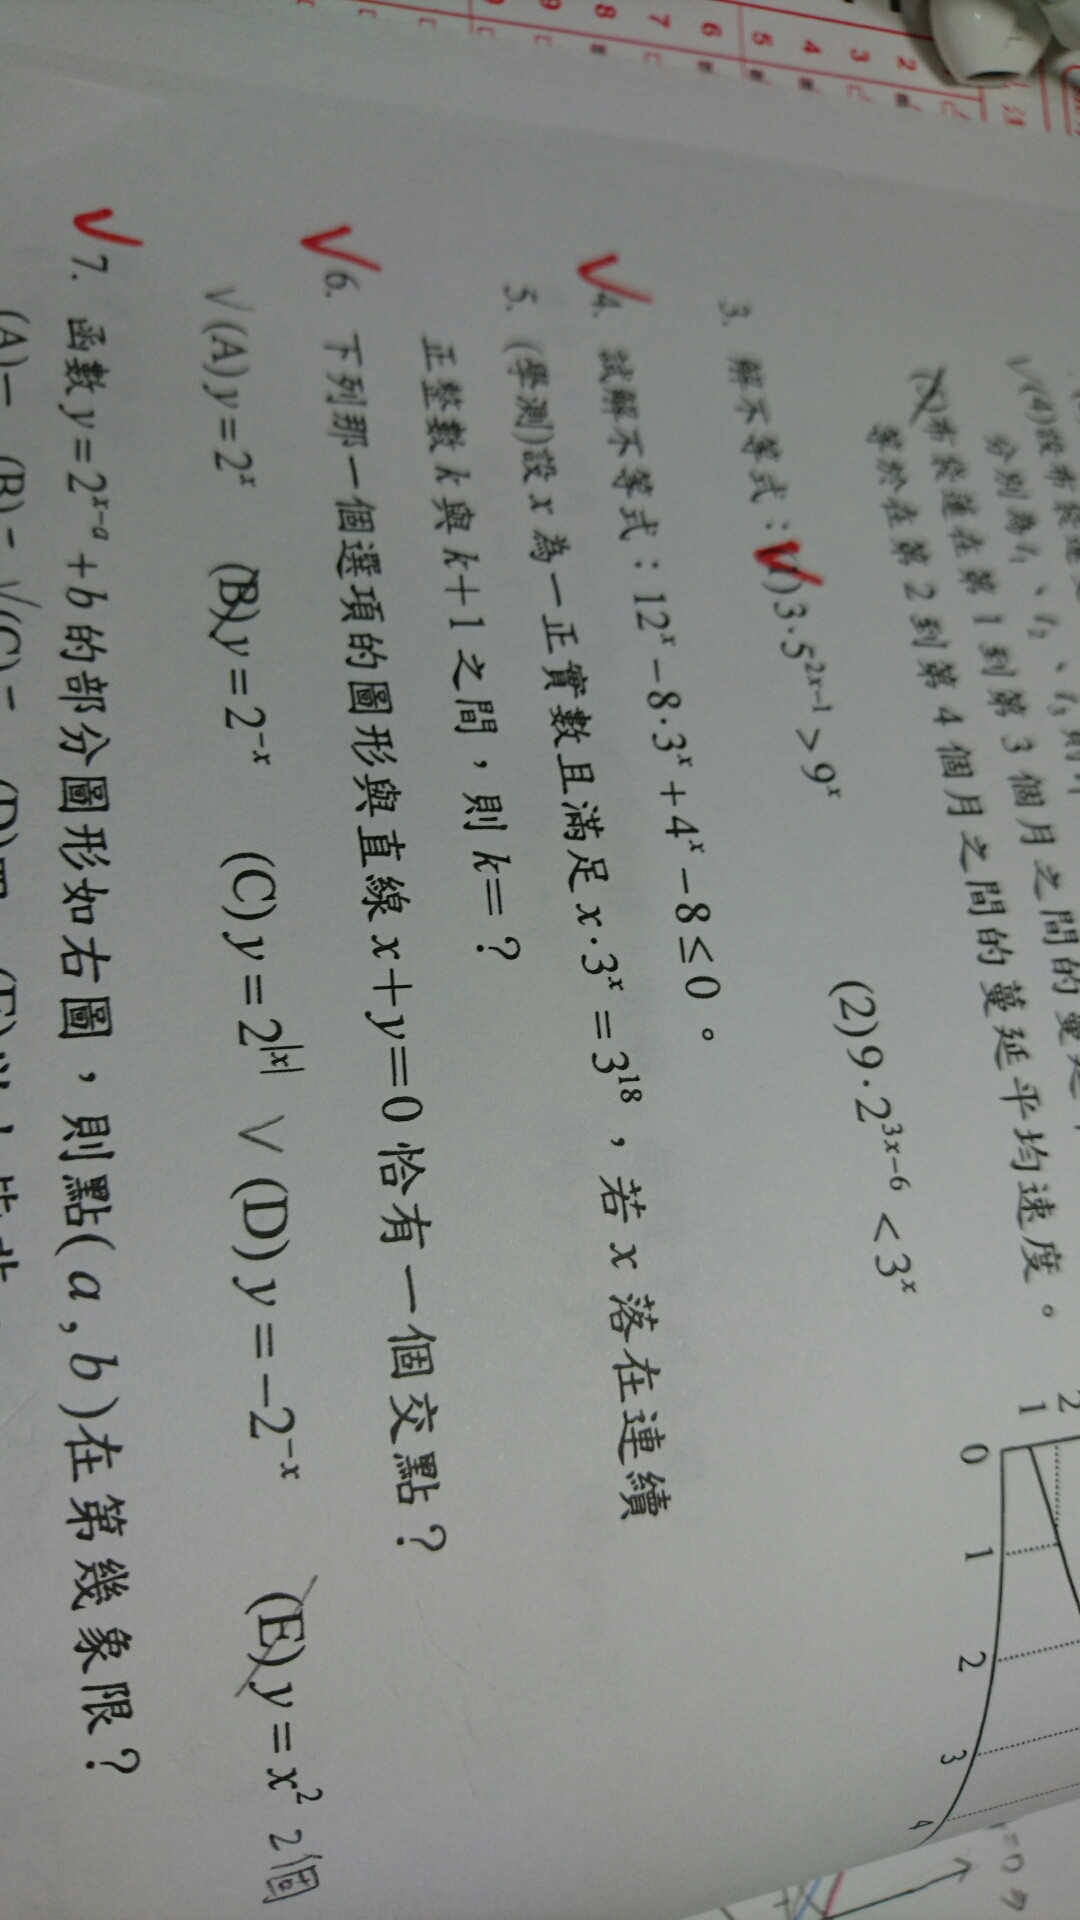 2 3 4 5 6 7 8 9
√(4)設布袋蓮
分別為
(5)布袋蓮在第1到第3個月之間的蔓延平均速度。
等於在第2到第4個月之間的蔓延平均速度。
2
1
0 1 2 3 4
3. 解不等式：(1)3·5²ˣ⁻¹>9ˣ (2)9·2³ˣ⁻⁶<3ˣ
4. 試解不等式：12ˣ-8·3ˣ+4ˣ-8≤0。
5. (學測)設x為一正實數且滿足x·3ˣ=3¹⁸，若x落在連續
正整數k與k+1之間，則k=？
6. 下列那一個選項的圖形與直線x+y=0恰有一個交點？
√(A)y=2ˣ (B)y=2⁻ˣ (C)y=2^|x| √(D)y=-2⁻ˣ (E)y=x² 2個
7. 函數y=2ˣ⁻ᵃ+b的部分圖形如右圖，則點(a,b)在第幾象限？
(A)一 (B)二 √(C)三 (D)四